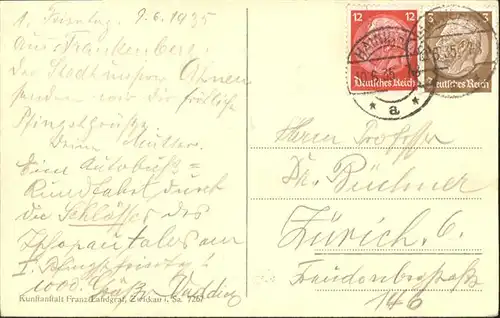 1. Feiertag 9.6.1935
Aus Frankenberg,
der Stadt unserer Ahnen
senden wir Dir fröhliche
Pfingstgrüße
Deine Mutter.
Eine Autobus=
Rundfahrt durch
die Schlösser des
Zschopautales am
I. Pfingstfeiertag!
1000 Grüße
Kunstanstalt Franz Landgraf, Zwickau i. Sa.
12 12
Deutsches Reich
3 3
Deutsches Reich
* a *
Herrn Professor
Dr. Büchner
Zürich 6.
Freudenbergstraße
146